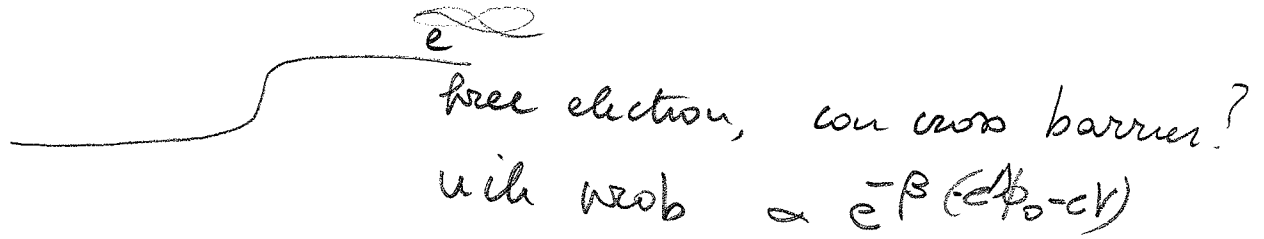 e
free electron, can cross barrier?
with prob ∝ e^{-β(-eΔϕ₀-eV)}